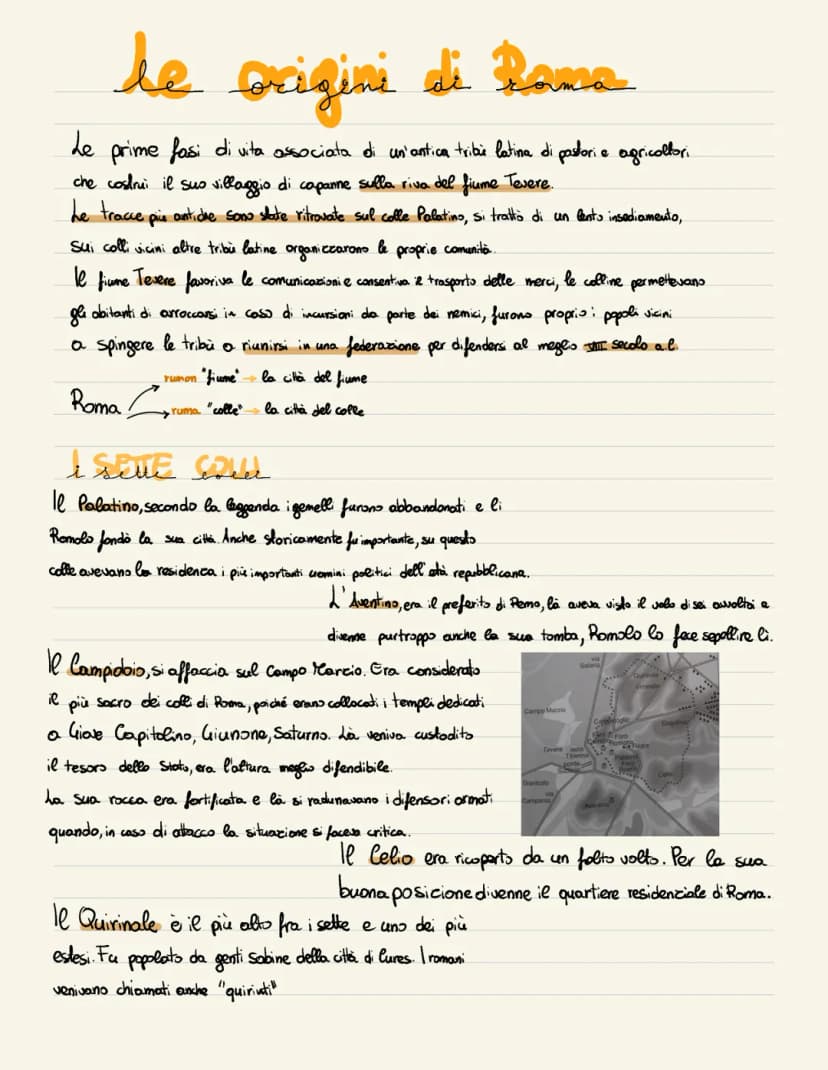 Le origini di Roma
Le prime fasi di vita associata di un'antica tribù latina di pastori e agricoltori
che costruì il suo villaggio di capanne sulla riva del fiume Tevere.
Le tracce più antiche sono state ritrovate sul colle Palatino, si trattò di un lento insediamento,
sui colli vicini altre tribù latine organizzarono le proprie comunità.
Il fiume Tevere favoriva le comunicazioni e consentiva il trasporto delle merci, le colline permettevano
gli abitanti di arroccarsi in caso di incursioni da parte dei nemici, furono proprio i popoli vicini
a spingere le tribù a riunirsi in una federazione per difendersi al meglio VIII secolo a.C.
rumon "fiume" → la città del fiume
Roma
ruma "colle" → la città del colle
i SETTE COLLI
Il Palatino, secondo la leggenda i gemelli furono abbandonati e lì
Romolo fondò la sua città. Anche storicamente fu importante, su questo
colle avevano la residenza i più importanti uomini politici dell'età repubblicana.
L'Aventino, era il preferito di Remo, là aveva visto il volo di sei avvoltoi e
divenne purtroppo anche la sua tomba, Romolo lo fece sepollire lì.
Il Campidoio, si affaccia sul Campo Marzio. Era considerato
il più sacro dei colli di Roma, poiché erano collocati i templi dedicati
a Giove Capitolino, Giunone, Saturno. Là veniva custodito
il tesoro dello Stato, era l'altura meglio difendibile.
La sua rocca era fortificata e là si radunavano i difensori armati
quando, in caso di attacco la situazione si faceva critica.
via
Salaria
Quirinale
Viminale
Campo Marzio
Campidoglio
Esquilino
Foro
Tevere
Isola
Tiberina
Palatino
Foro
Boario
Celio
Gianicolo
via
Campana
Aventino
Il Celio era ricoperto da un folto volto. Per la sua
buona posizione divenne il quartiere residenziale di Roma.
Il Quirinale è il più alto fra i sette e uno dei più
estesi. Fu popolato da genti sabine della città di Cures. I romani
venivano chiamati anche "quiriti"